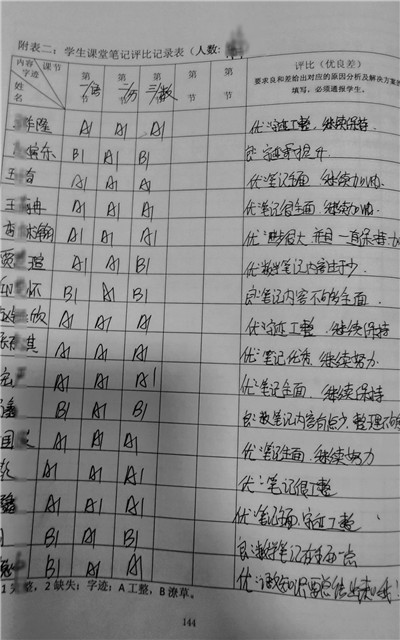 附表二：学生课堂笔记评比记录表（人数：
内容 课节 字迹 姓名 第一节 语 第二节 历 第三节 数 第 节 第 节 评比（优良差）
要求良和差给出对应的原因分析及解决方案的
填写，必须通报学生。
隆 A1 A1 A1 优：字迹工整，继续保持.
乐 B1 A1 B1 良：字迹需提升.
王 A1 A1 A1 优：笔记全面，继续加油.
王 冉 A1 A1 A1 优：笔记很全面，继续加油.
翰 A1 A1 A1 优：进步很大，并且一直保持
贾 瑄 A1 A1 B1 优：数学笔记内容过于少.
怀 B1 A1 B1 良：笔记内容不够全面.
欣 A1 A1 A1 优：字迹工整，继续保持
其 A1 A1 A1 优：笔记优秀，继续努力
A1 A1 A1 优：笔记全面，继续保持
B1 A1 B1 良：数笔记内容有点少，整理不够
国 A1 A1 A1 优：笔记全面，继续努力
A1 A1 A1 优：笔记很工整
A1 A1 A1 优：笔记全面，字迹工整.
B1 A1 B1 良：数学笔记在全面一点
B1 A1 A1 优：
1 完整，2 缺失；字迹：A 工整，B 潦草。
144